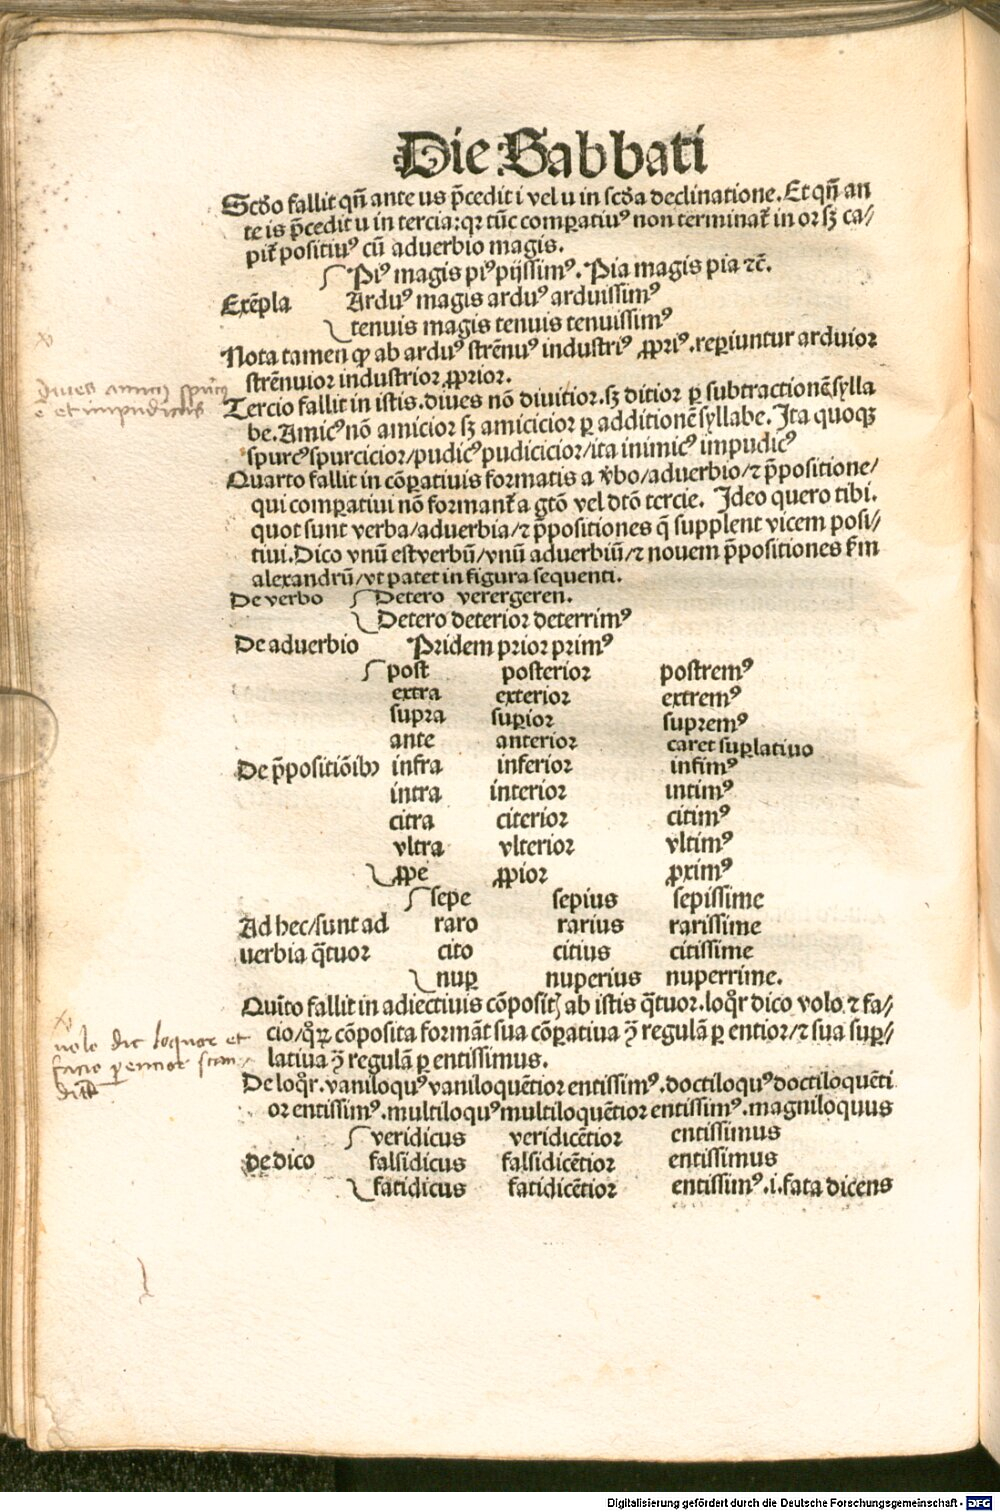 Die Sabbati
Scḋo fallit qn̄ ante us p̄cedit i vel u in scḋa declinatione. Et qn̄ an
te is p̄cedit u in tercia: qꝛ tūc comꝑatiuꝰ non terminat᷑ in or sꝫ ca/
pit᷑ positiuꝰ cū aduerbio magis.
Piꝰ magis piꝰ pijssimꝰ. Pia magis pia ⁊c̄.
Exēpla Arduꝰ magis arduꝰ arduissimꝰ
tenuis magis tenuis tenuissimꝰ
Nota tamen ꝙ ab arduꝰ strēnuꝰ industriꝰ ꝓpriꝰ. reꝑiuntur arduior
strēnuior industrior ꝓprior.
Tercio fallit in istis. diues nō diuitior. sꝫ ditior ꝑ subtractionē sylla
be. Amicꝰ nō amicior sꝫ amicicior ꝑ additionē syllabe. Ita quoqꝫ
spurcꝰ spurcicior/pudicꝰ pudicicior/ita inimicꝰ impudicꝰ
Quarto fallit in cōꝑatiuis formatis a v̄bo/aduerbio/⁊ p̄positione/
qui comꝑatiui nō formant᷑ a gtō vel dtō tercie. Ideo quero tibi.
quot sunt verba/aduerbia/⁊ p̄positiones q̄ supplent vicem posi/
tiui. Dico vnū est verbū/vnū aduerbiū/⁊ nouem p̄positiones ẜm
alexandrū/vt patet in figura sequenti.
De verbo Detero verergeren.
Detero deterior deterrimꝰ
De aduerbio Pridem prior primꝰ
post posterior postremꝰ
extra exterior extremꝰ
supra suꝑior supremꝰ
ante anterior caret suꝑlatiuo
De p̄positiōibꝰ infra inferior infimꝰ
intra interior intimꝰ
citra citerior citimꝰ
vltra vlterior vltimꝰ
ꝓpe ꝓpior ꝓximꝰ
sepe sepius sepissime
Ad hec/sunt ad raro rarius rarissime
uerbia q̄tuor cito citius citissime
nuꝑ nuperius nuperrime.
Quīto fallit in adiectiuis cōposit᷒ ab istis q̄tuor. loq̊r dico volo ⁊ fa/
cio/q̊ꝝ cōposita formāt sua cōꝑatiua ꝯ̄ regulā ꝑ entior/⁊ sua suꝑ/
latiua ꝯ̄ regulā ꝑ entissimus.
De loq̊r. vaniloquꝰ vaniloquētior entissimꝰ. doctiloquꝰ doctiloquēti
or entissimꝰ. multiloquꝰ multiloquētior entissimꝰ. magniloquus
veridicus veridicētior entissimus
De dico falsidicus falsidicētior entissimus
fatidicus fatidicētior entissimꝰ. i. fata dicens
et impudicus
volo dic loquor et
facio
Digitalisierung gefördert durch die Deutsche Forschungsgemeinschaft - DFG